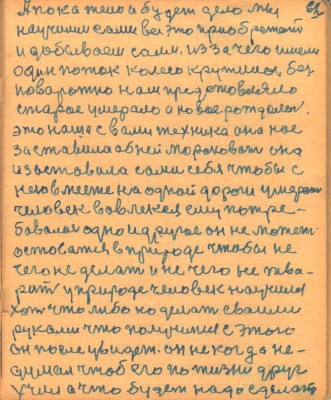 А пока тело и будет дело мы
научимся сами все это приобретать
и добываем сами. из за чего имели
один поток колесо кружилось без
поваротно нам представляло
старое умерало а новое рождалося.
это наша с вами техника она нас
заставила об ней мороковать она
и заставила сами себя чтобы с
нею вместе на одной дороги умерать
человек вовлекся ему потре-
бовалося одно и другое он не может
остоватся в природе чтобы не
чего не делать и не чего не тва-
рить у природе человек научился
хоть что либо но делать своими
руками что получится с этого
он после увидет. он не когда не-
думал чтоб его по жизни друг
учил а что будет надо сделать